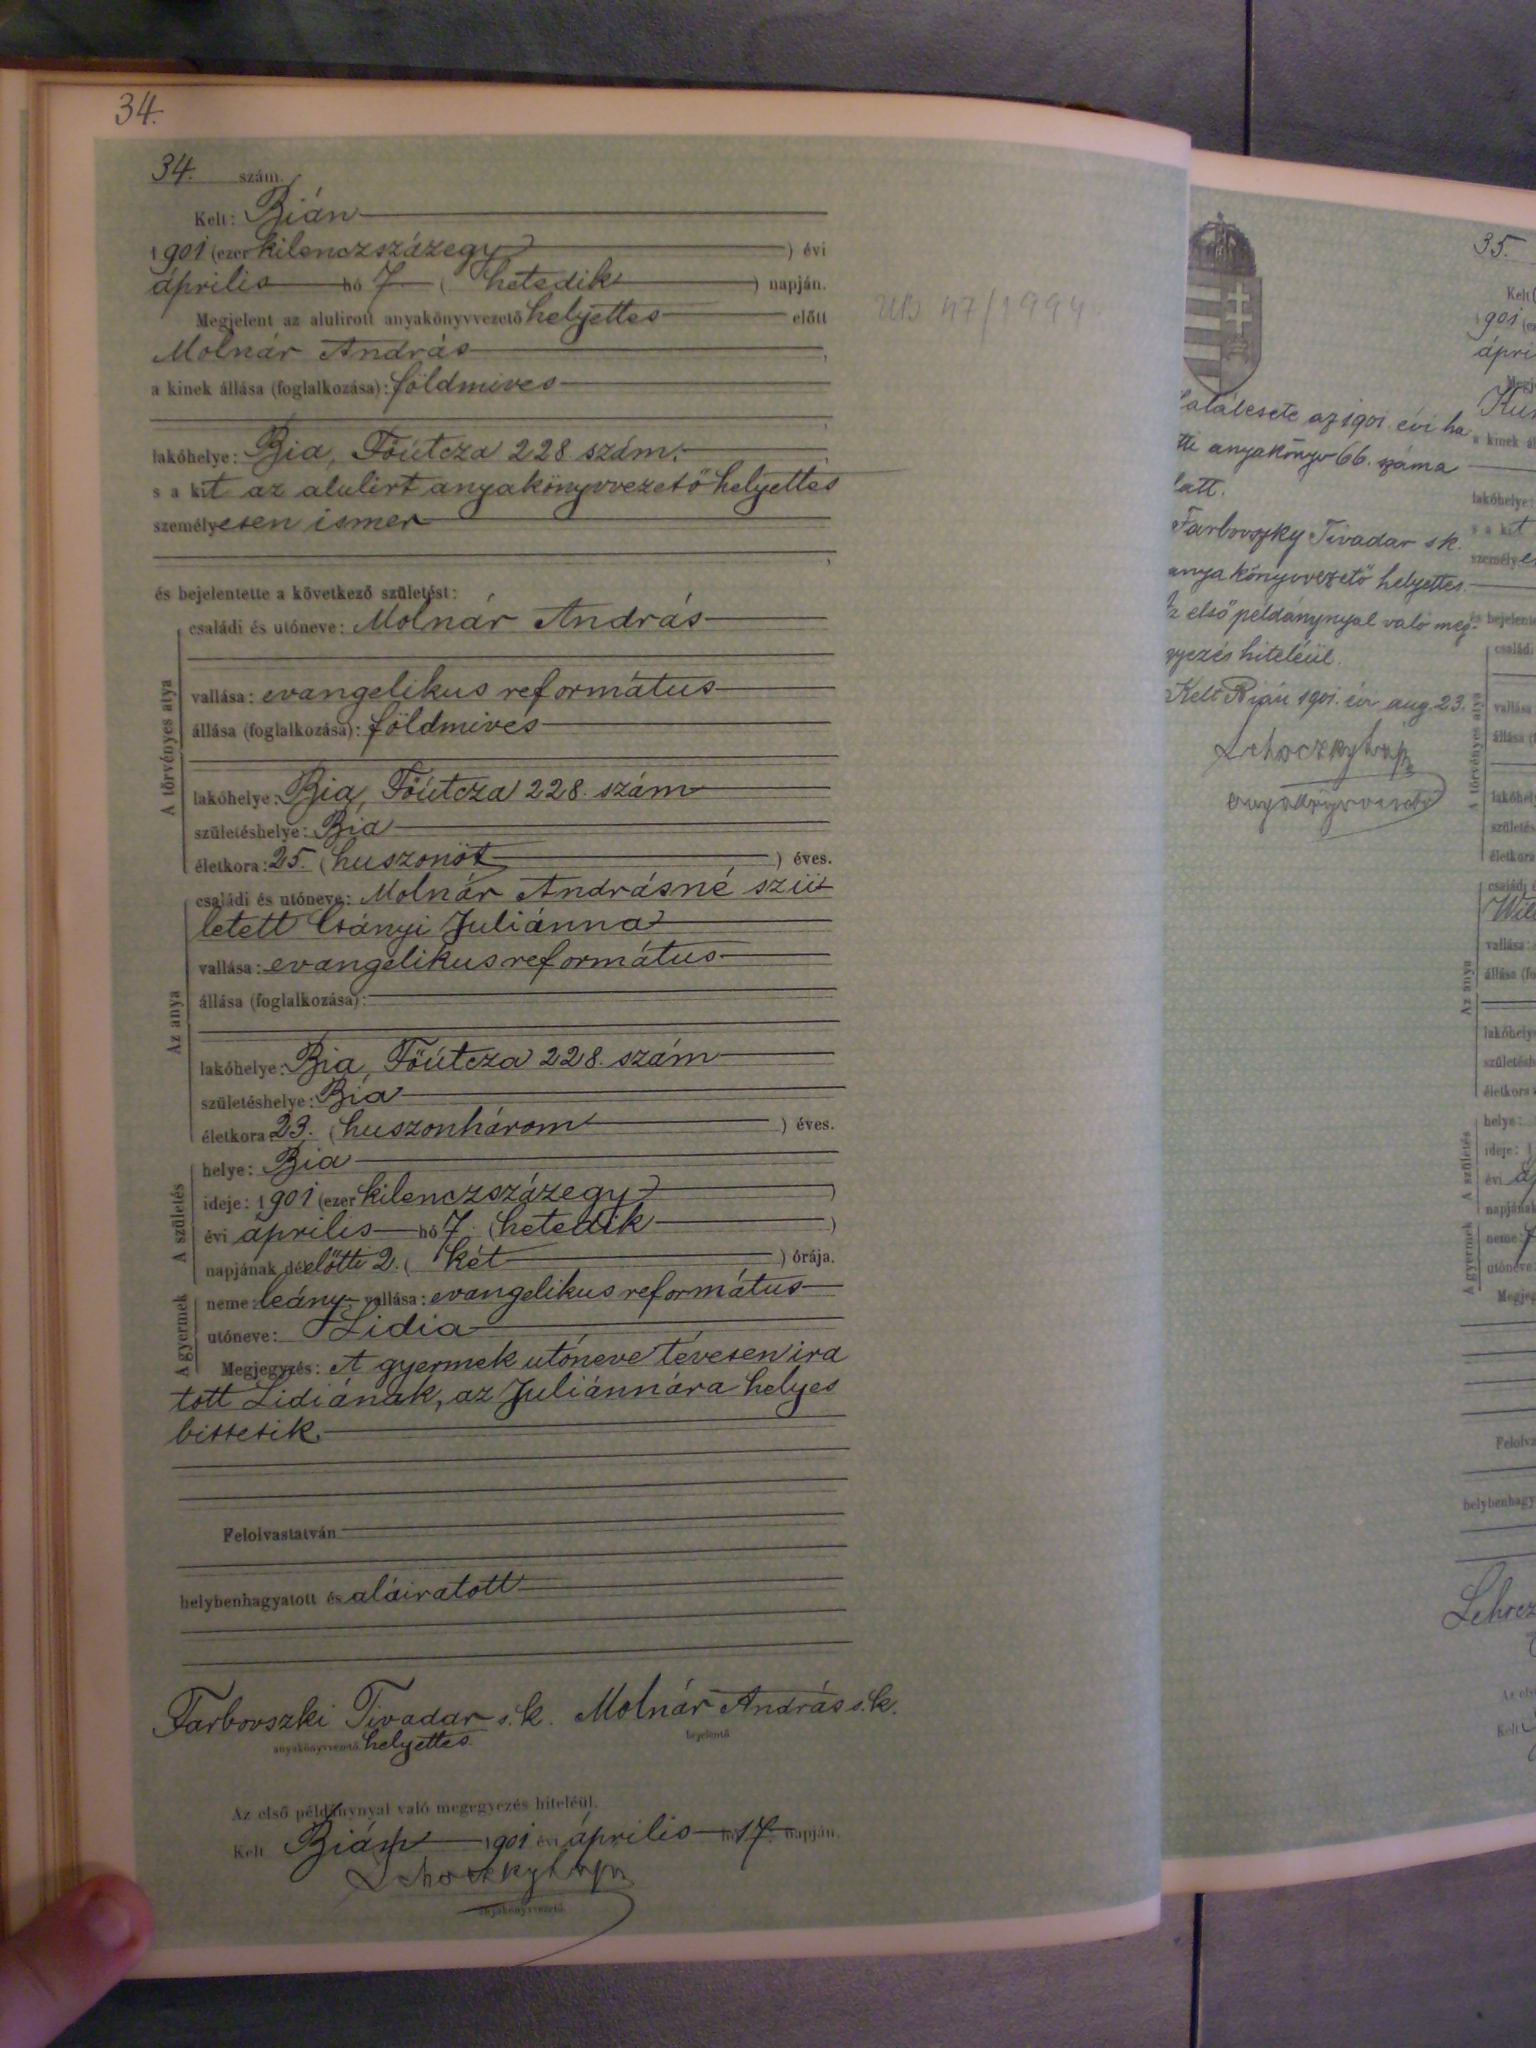 34.
34. szám.
Kelt: Bián
1901 (ezer kilenczszázegy) évi
április hó 7. (hetedik) napján.
Megjelent az alulirott anyakönyvvezető helyettes előtt
Molnár András,
a kinek állása (foglalkozása): földmives
lakóhelye: Bia, Főútcza 228 szám.
s a kit az alulirt anyakönyvvezető helyettes
személyesen ismer
és bejelentette a következő születést:
A törvényes atya
családi és utóneve: Molnár András
vallása: evangelikus református
állása (foglalkozása): földmives
lakóhelye: Bia, Főútcza 228. szám
születéshelye: Bia
életkora: 25. (huszonöt) éves.
Az anya
családi és utóneve: Molnár Andrásné szüt
letett Csányi Juliánna
vallása: evangelikus református
állása (foglalkozása):
lakóhelye: Bia, Főútcza 228. szám
születéshelye: Bia
életkora: 23. (huszonhárom) éves.
A születés
helye: Bia
ideje: 1901 (ezer kilenczszázegy)
évi április hó 7. (hetedik)
napjának délelőtti 2. (két) órája.
A gyermek
neme: leány, vallása: evangelikus református
utóneve: Lidia
Megjegyzés: A gyermek utóneve tévesen ira
tott Lidiának, az Juliánnára helyes
bittetik.
Felolvastatván
helybenhagyatott és aláiratott
Farbovszki Tivadar s.k. Molnár András s.k.
anyakönyvvezető helyettes bejelentő
Az első példánynyal való megegyezés hiteléül.
Kelt Bián 1901 évi április hó 17. napján.
anyakönyvvezető
47/1994
az 1901. évi ha
anyakönyv 66. száma
latt.
Farbovszky Tivadar s k.
anyakönyvvezető helyettes
első példánynyal való meg-
gyezés hiteléül.
Kelt Bián 1901. év aug 23.
anyakönyvvezető
35.
Kelt
1901
ápri
a kinek ál
lakóhelye:
s a kit
személye
és bejelente
A törvényes atya
családi
vallása
állása (f
lakóhely
születés
életkora
Az anya
családi é
vallása:
állása (fo
lakóhely
születésh
életkora
A születés
helye:
ideje: 1
évi
napjának
A gyermek
neme:
utóneve:
Megjeg
Felolva
helybenhagy
Az els
Kelt